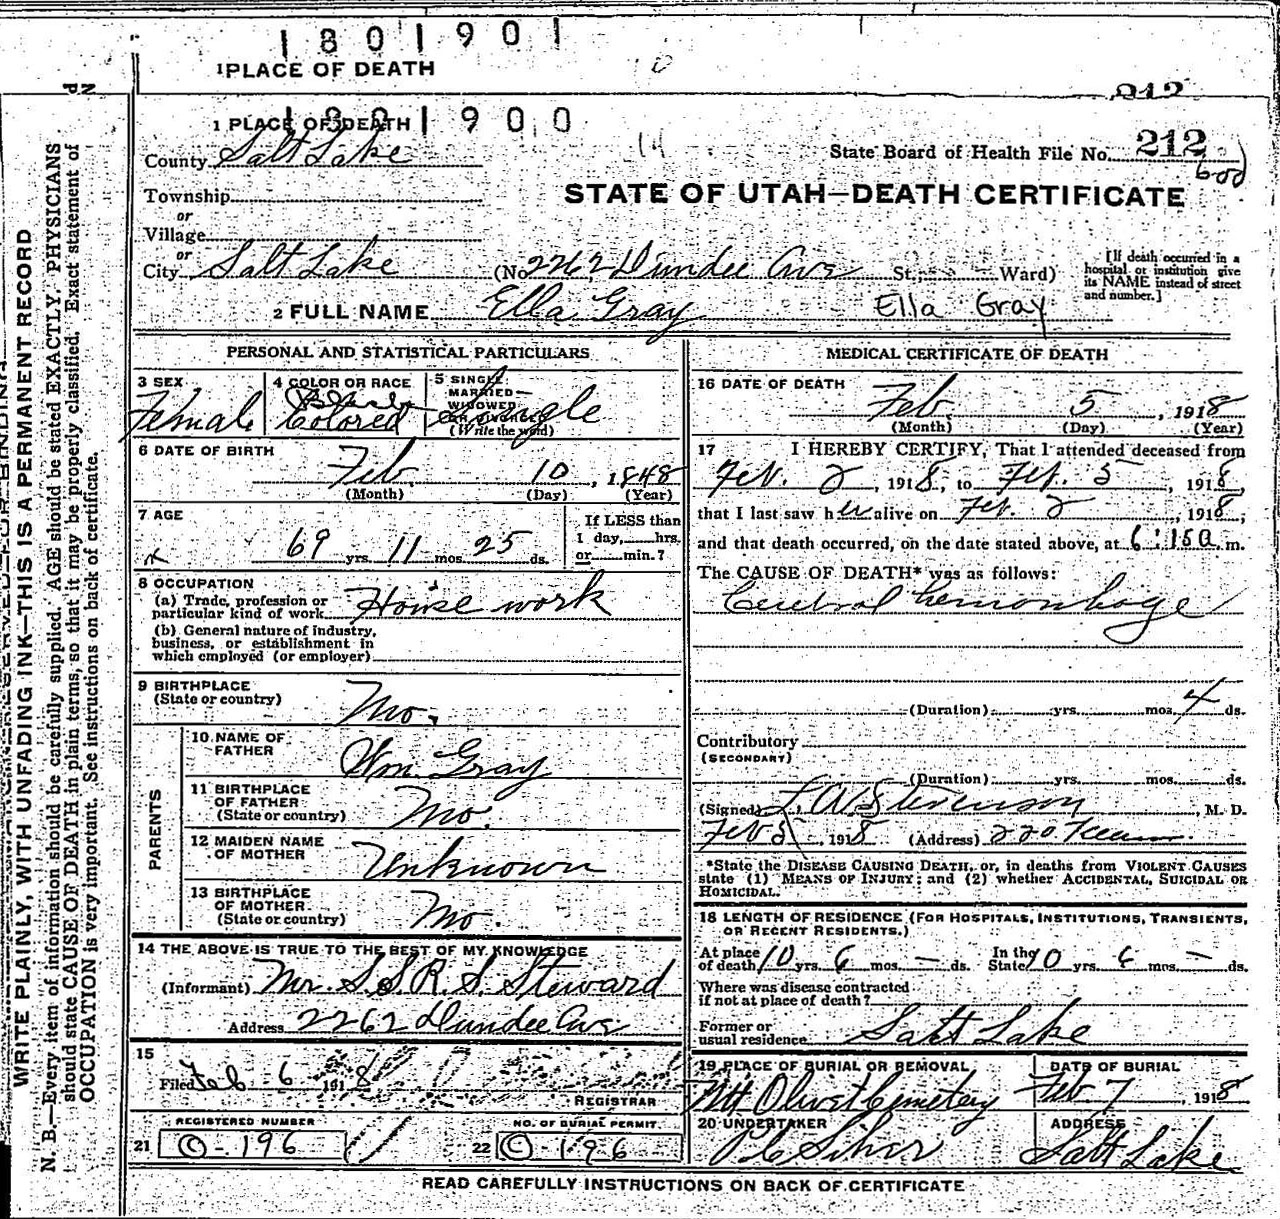 1801901
1 PLACE OF DEATH
212
1801900
1 PLACE OF DEATH
County Salt Lake
State Board of Health File No. 212
600
STATE OF UTAH—DEATH CERTIFICATE
Township
or
Village
or
City Salt Lake (No. 2262 Dundee Ave St.; Ward)
[If death occurred in a hospital or institution give its NAME instead of street and number.]
2 FULL NAME Ella Gray Ella Gray
PERSONAL AND STATISTICAL PARTICULARS
3 SEX Female
4 COLOR OR RACE Colored
5 SINGLE, MARRIED, WIDOWED, OR DIVORCED (Write the word) Single
6 DATE OF BIRTH Feb. 10, 1848
(Month) (Day) (Year)
7 AGE 69 yrs. 11 mos. 25 ds.
If LESS than 1 day, hrs. or min.?
8 OCCUPATION
(a) Trade, profession or particular kind of work House work
(b) General nature of industry, business, or establishment in which employed (or employer)
9 BIRTHPLACE (State or country) Mo.
PARENTS
10 NAME OF FATHER Wm. Gray
11 BIRTHPLACE OF FATHER (State or country) Mo.
12 MAIDEN NAME OF MOTHER Unknown
13 BIRTHPLACE OF MOTHER (State or country) Mo.
14 THE ABOVE IS TRUE TO THE BEST OF MY KNOWLEDGE
(Informant) Mr. S.S.R.S. Steward
Address 2262 Dundee Ave
15
Filed Feb 6 1918
REGISTRAR
REGISTERED NUMBER
21 O-196
NO. OF BURIAL PERMIT
22 C-196
MEDICAL CERTIFICATE OF DEATH
16 DATE OF DEATH
Feb 5, 1918
(Month) (Day) (Year)
17 I HEREBY CERTIFY, That I attended deceased from
Feb. 2, 1918, to Feb. 5, 1918,
that I last saw her alive on Feb. 2, 1918,
and that death occurred, on the date stated above, at 6:15a m.
The CAUSE OF DEATH* was as follows:
Cerebral hemorrhage
(Duration) yrs. mos. 4 ds.
Contributory
(SECONDARY)
(Duration) yrs. mos. ds.
(Signed) L. W. Stevenson, M. D.
Feb 5, 1918 (Address) 220 Kearns
*State the DISEASE CAUSING DEATH, or, in deaths from VIOLENT CAUSES
state (1) MEANS OF INJURY; and (2) whether ACCIDENTAL, SUICIDAL OR
HOMICIDAL.
18 LENGTH OF RESIDENCE (FOR HOSPITALS, INSTITUTIONS, TRANSIENTS,
OR RECENT RESIDENTS.)
At place of death 10 yrs. 6 mos. — ds. In the State 10 yrs. 6 mos. — ds.
Where was disease contracted
if not at place of death?
Former or
usual residence Salt Lake
19 PLACE OF BURIAL OR REMOVAL Mt Olivet Cemetery
DATE OF BURIAL Feb 7, 1918
20 UNDERTAKER
ADDRESS Salt Lake
READ CAREFULLY INSTRUCTIONS ON BACK OF CERTIFICATE
WRITE PLAINLY, WITH UNFADING INK—THIS IS A PERMANENT RECORD
N. B.—Every item of information should be carefully supplied. AGE should be stated EXACTLY. PHYSICIANS
should state CAUSE OF DEATH in plain terms, so that it may be properly classified. Exact statement of
OCCUPATION is very important. See instructions on back of certificate.